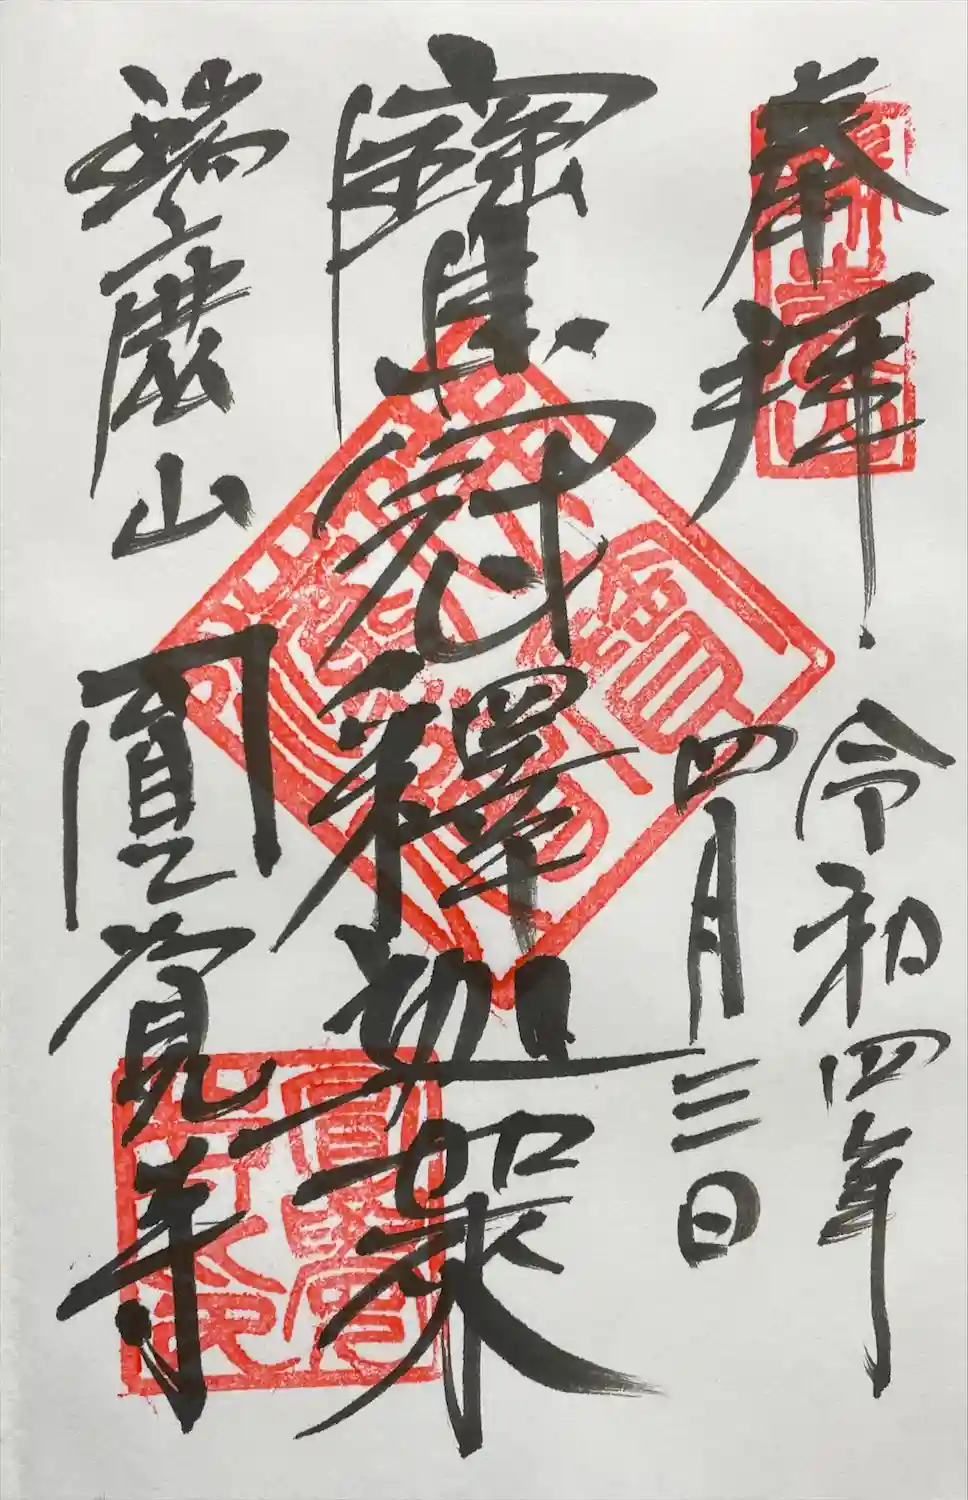 奉拝
令和四年
四月三日
寶冠釋迦
瑞鹿山
圓覺寺